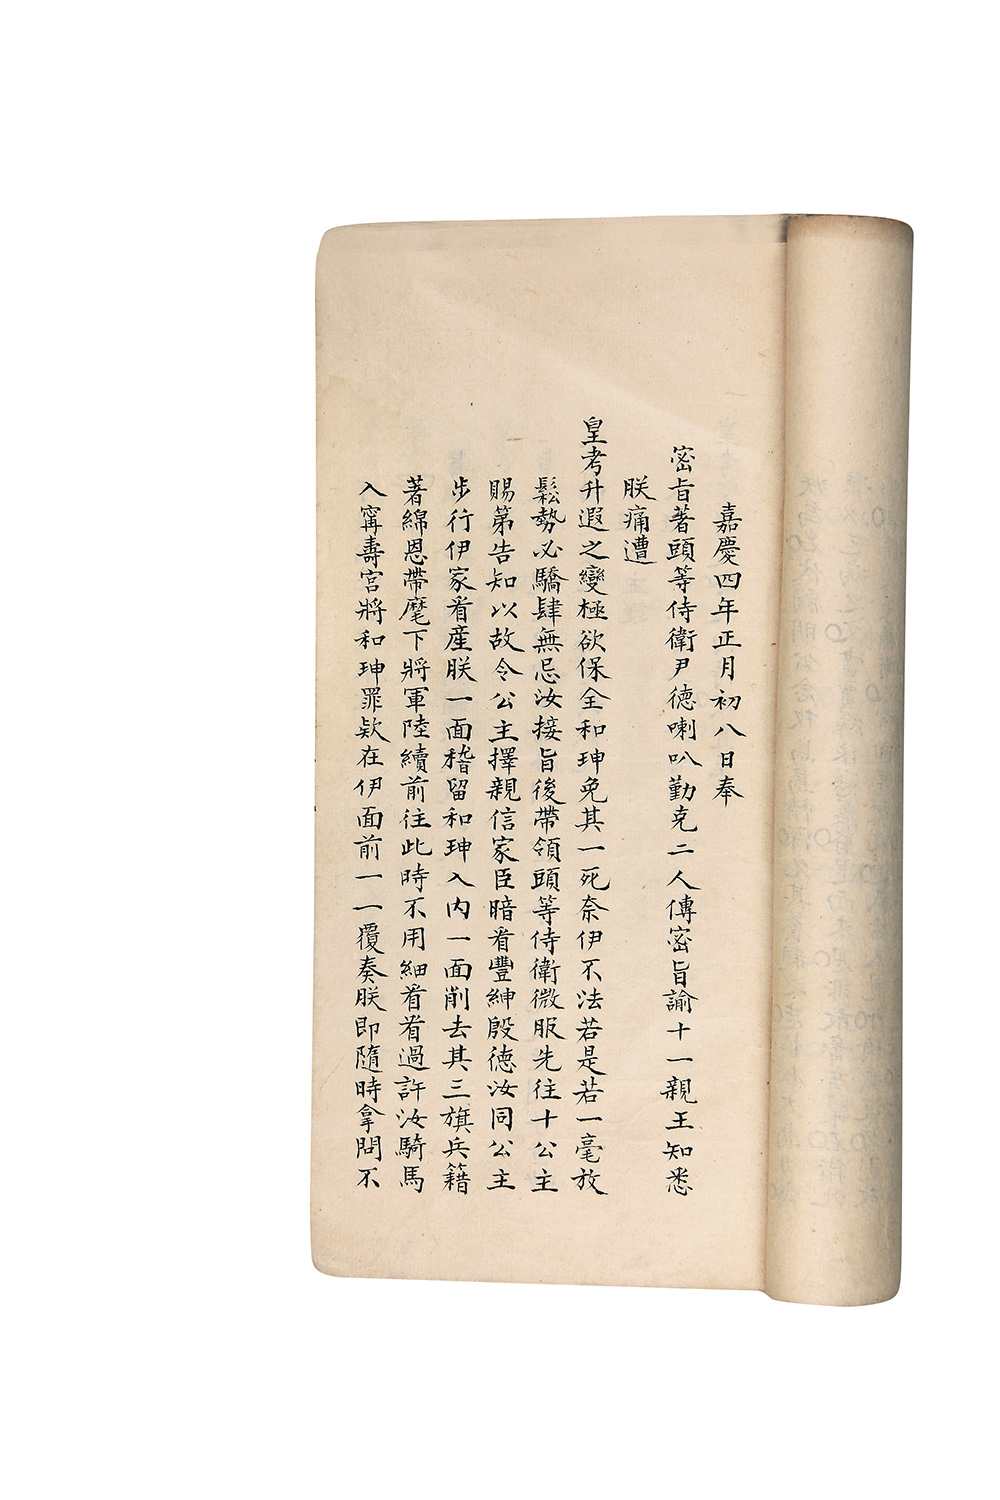 嘉慶四年正月初八日奉
密旨著頭等侍衛尹德喇叭勤克二人傳密旨諭十一親王知悉
朕痛遭
皇考升遐之變極欲保全和珅免其一死奈伊不法若是若一毫放
鬆勢必驕肆無忌汝接旨後帶領頭等侍衛微服先往十公主
賜第告知以故令公主擇親信家臣暗看豐紳殷德汝同公主
步行伊家看產朕一面稽留和珅入內一面削去其三旗兵籍
著綿恩帶麾下將軍陸續前往此時不用細看看過許汝騎馬
入甯壽宮將和珅罪款在伊面前一一覆奏朕即隨時拿問不